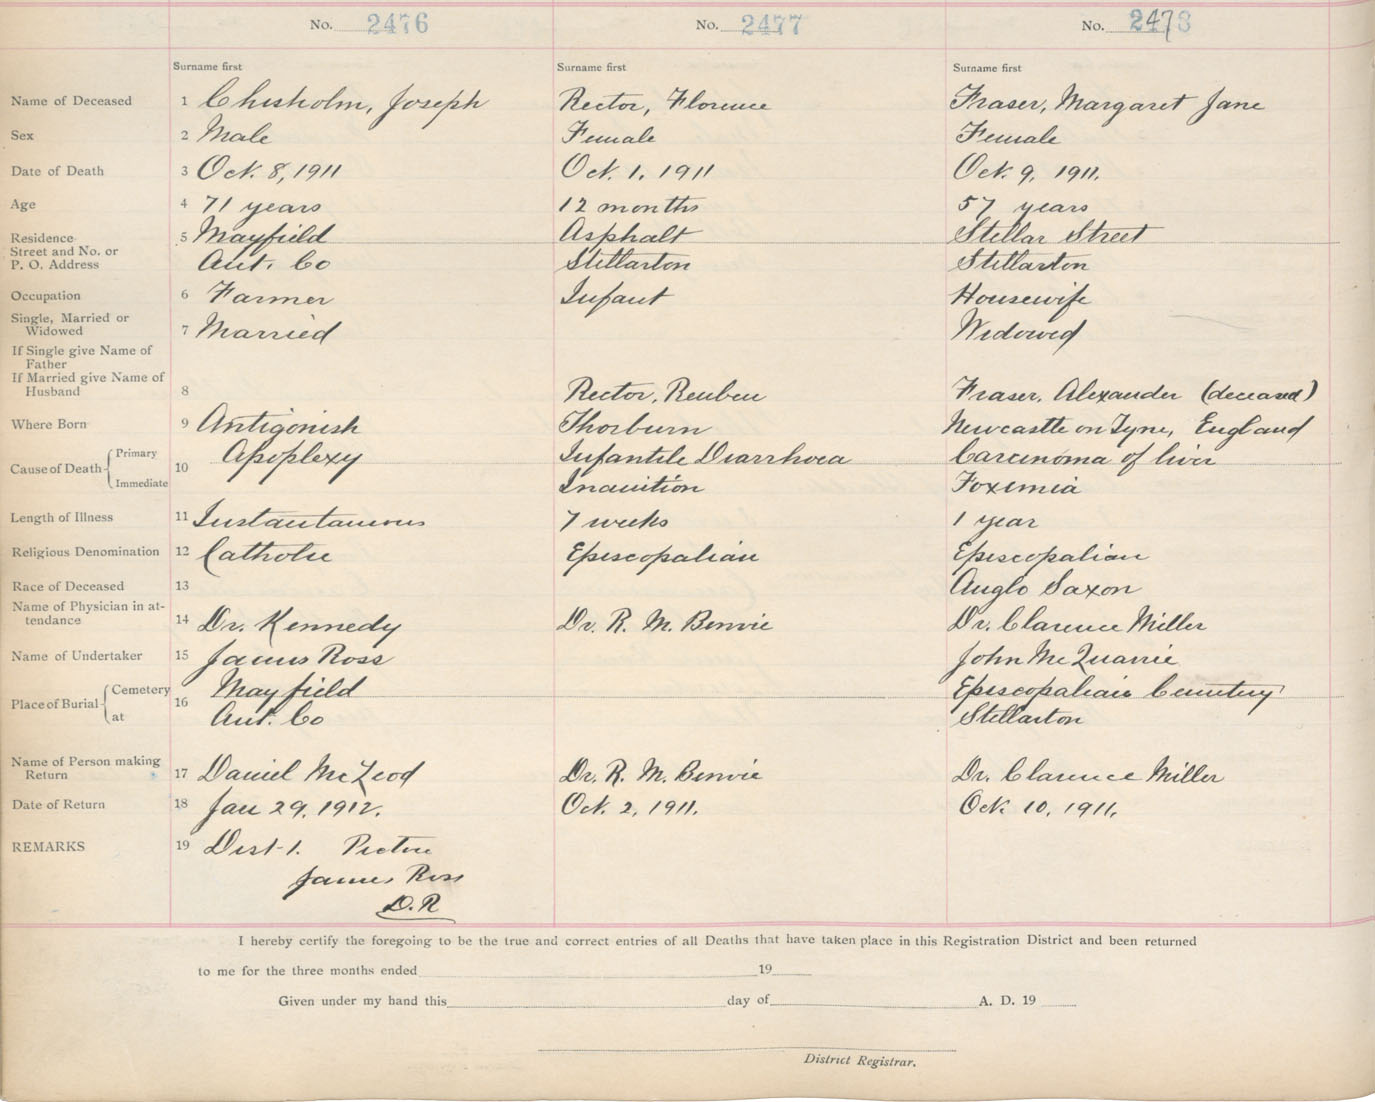 No. 2476 No. 2477 No. 2478
Surname first Surname first Surname first
Name of Deceased 1 Chisholm, Joseph Rector, Florence Fraser, Margaret Jane
Sex 2 Male Female Female
Date of Death 3 Oct. 8, 1911 Oct. 1. 1911 Oct. 9, 1911.
Age 4 71 years 12 months 57 years
Residence 5 Mayfield Asphalt Stellar Street
Street and No. or
P. O. Address Ant. Co Stellarton Stellarton
Occupation 6 Farmer Infant Housewife
Single, Married or
Widowed 7 Married Widowed
If Single give Name of
Father
If Married give Name of
Husband 8 Rector, Reuben Fraser, Alexander (deceased)
Where Born 9 Antigonish Thorburn Newcastle on Tyne, England
Cause of Death Primary 10 Apoplexy Infantile Diarrhoea Carcinoma of liver
Immediate Inanition Toxemia
Length of Illness 11 Instantaneous 7 weeks 1 year
Religious Denomination 12 Catholic Episcopalian Episcopalian
Race of Deceased 13 Anglo Saxon
Name of Physician in at-
tendance 14 Dr. Kennedy Dr. R. M. Benvie Dr. Clarence Miller
Name of Undertaker 15 James Ross John McQuarrie
Place of Burial Cemetery 16 Mayfield Episcopalian Cemetery
at Ant. Co Stellarton
Name of Person making
Return 17 Daniel McLeod Dr. R. M. Benvie Dr. Clarence Miller
Date of Return 18 Jan 29, 1912. Oct. 2, 1911. Oct 10, 1911.
REMARKS 19 Dist-1. Pictou
James Ross
D. R
I hereby certify the foregoing to be the true and correct entries of all Deaths that have taken place in this Registration District and been returned
to me for the three months ended 19
Given under my hand this day of A. D. 19
District Registrar.